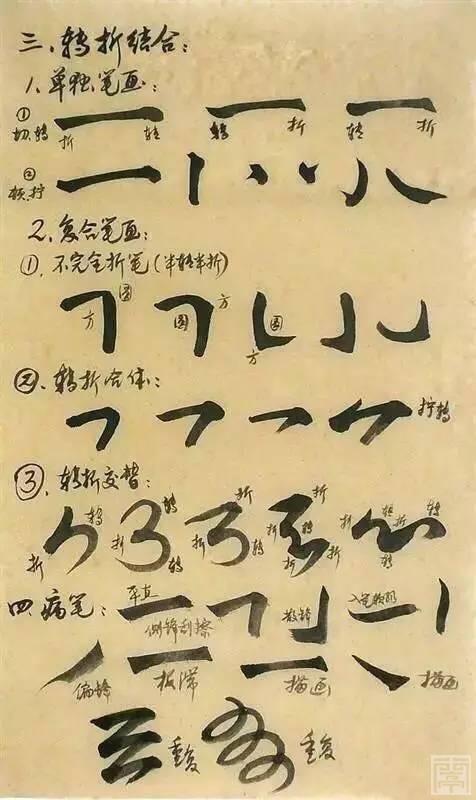 三、转折结合：
1、单独笔画：
① 切、转 折 转 转 折 转 折
② 顿、拧
2、复合笔画：
①、不完全折笔（半转半折）
方 圆 圆 方 方 圆
②、转折合体：
拧转
③、转折交替：
折 转 折 转 转 折 折 转 折 折 转 折 折 转 折 转 转
四、病笔：
平直 侧锋刮擦 散锋 入笔顿
偏锋 板滞 描画 描画
重复 重复